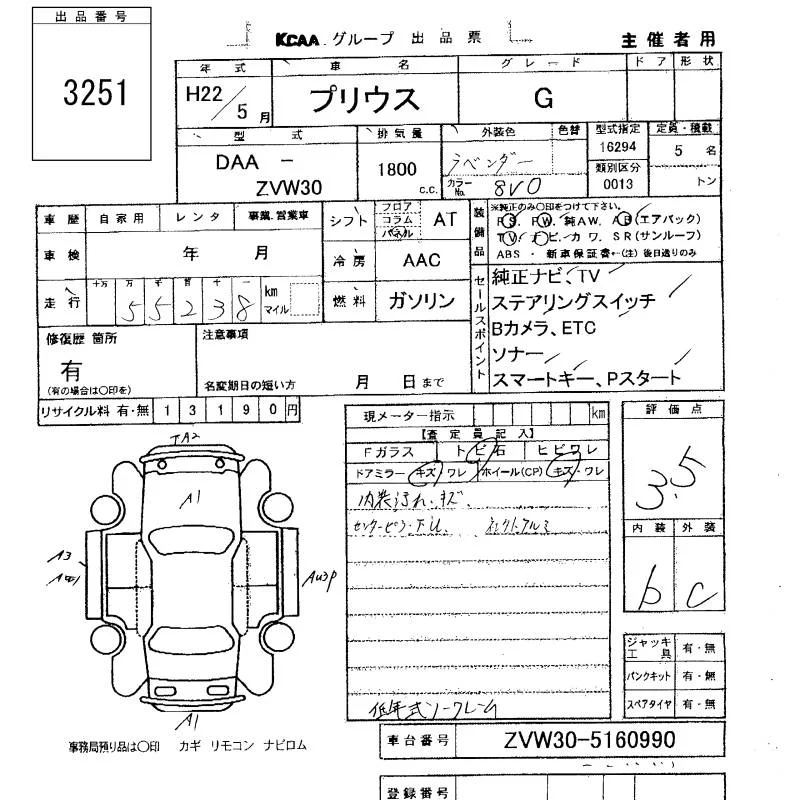 出品番号
3251
KCAA グループ 出品票
主催者用
年式 車名 グレード ドア 形状
H22/5月 プリウス G
型式 排気量 外装色 色替 型式指定 定員・積載
DAA - ZVW30
1800 c.c.
ラベンダー
カラーNo. 8V0
16294
類別区分
0013
5 名
トン
車歴 自家用 レンタ 事業.営業車
車検 年 月
走行 十万 万 千 百 十 一 km マイル
55238
シフト フロア コラム パネル AT
冷房 AAC
燃料 ガソリン
装備品
※純正のみ〇印をつけて下さい。
PS. PW. 純AW. AB(エアバック)
TV. ナビ. カワ. SR(サンルーフ)
ABS ・ 新車保証書←(注)後日送りのみ
セールスポイント
純正ナビ、TV
ステアリングスイッチ
Bカメラ、ETC
ソナー
スマートキー、Pスタート
修復歴 箇所
有
(有の場合は〇印を)
注意事項
名変期日の短い方 月 日まで
リサイクル料 有・無 13190円
現メーター指示 km
【査定員記入】
Fガラス トビ石 ヒビワレ
ドアミラー キズ・ワレ ホイール(CP) キズ・ワレ
内装汚れ・キズ
センターピラーFU. ネクストアルミ
低年式ソーフレーム
評価点
3.5
内装 外装
b C
ジャッキ工具 有・無
パンクキット 有・無
スペアタイヤ 有・無
A1
A3
AU3P
A1
事務局預り品は〇印 カギ リモコン ナビロム
車台番号 ZVW30-5160990
登録番号